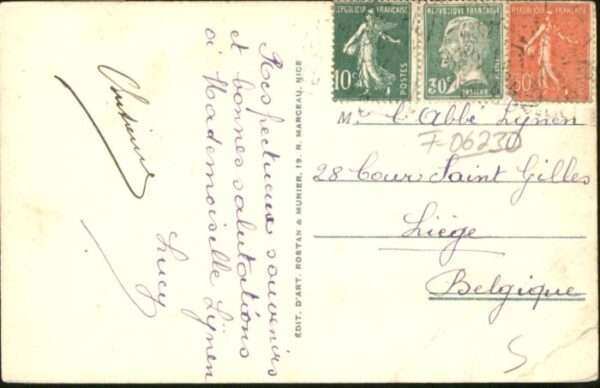 Respectueux souvenirs
et bonnes salutations
à Mademoiselle Lÿnen
Lucy
EDIT. D'ART. ROSTAN & MUNIER, 19, R. MARCEAU, NICE
RÉPUBLIQUE FRANÇAISE
10c
POSTES
RÉPUBLIQUE FRANÇAISE
30c
PASTEUR
RÉPUBLIQUE FRANÇAISE
50c
M. l'Abbé Lÿnen
F-06230
28 Cour Saint Gilles
Liège
Belgique